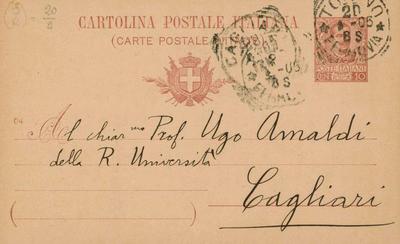 20
5
CARTOLINA POSTALE ITALIANA
(CARTE POSTALE
TORINO
20
-05
8 S
FERROVIA
CAGLIARI
-05
8 S
POSTE ITALIANE
CEN. 10
Al chiar mo Prof. Ugo Amaldi
della R. Università
Cagliari